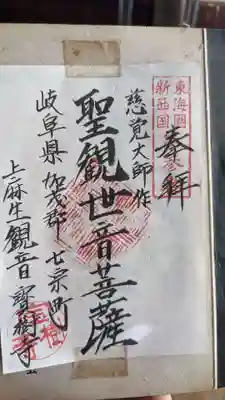 奉拝
慈覚大師作
聖観世音菩薩
岐阜県加茂郡七宗町
上麻生観音寳樹寺
東海圏
新西国